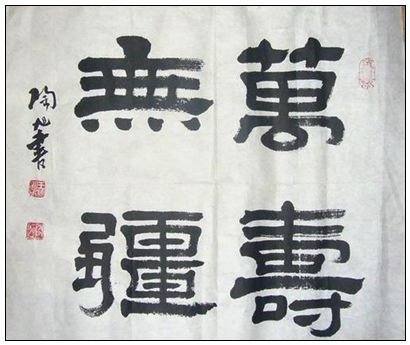 萬壽
無疆
陶旭書